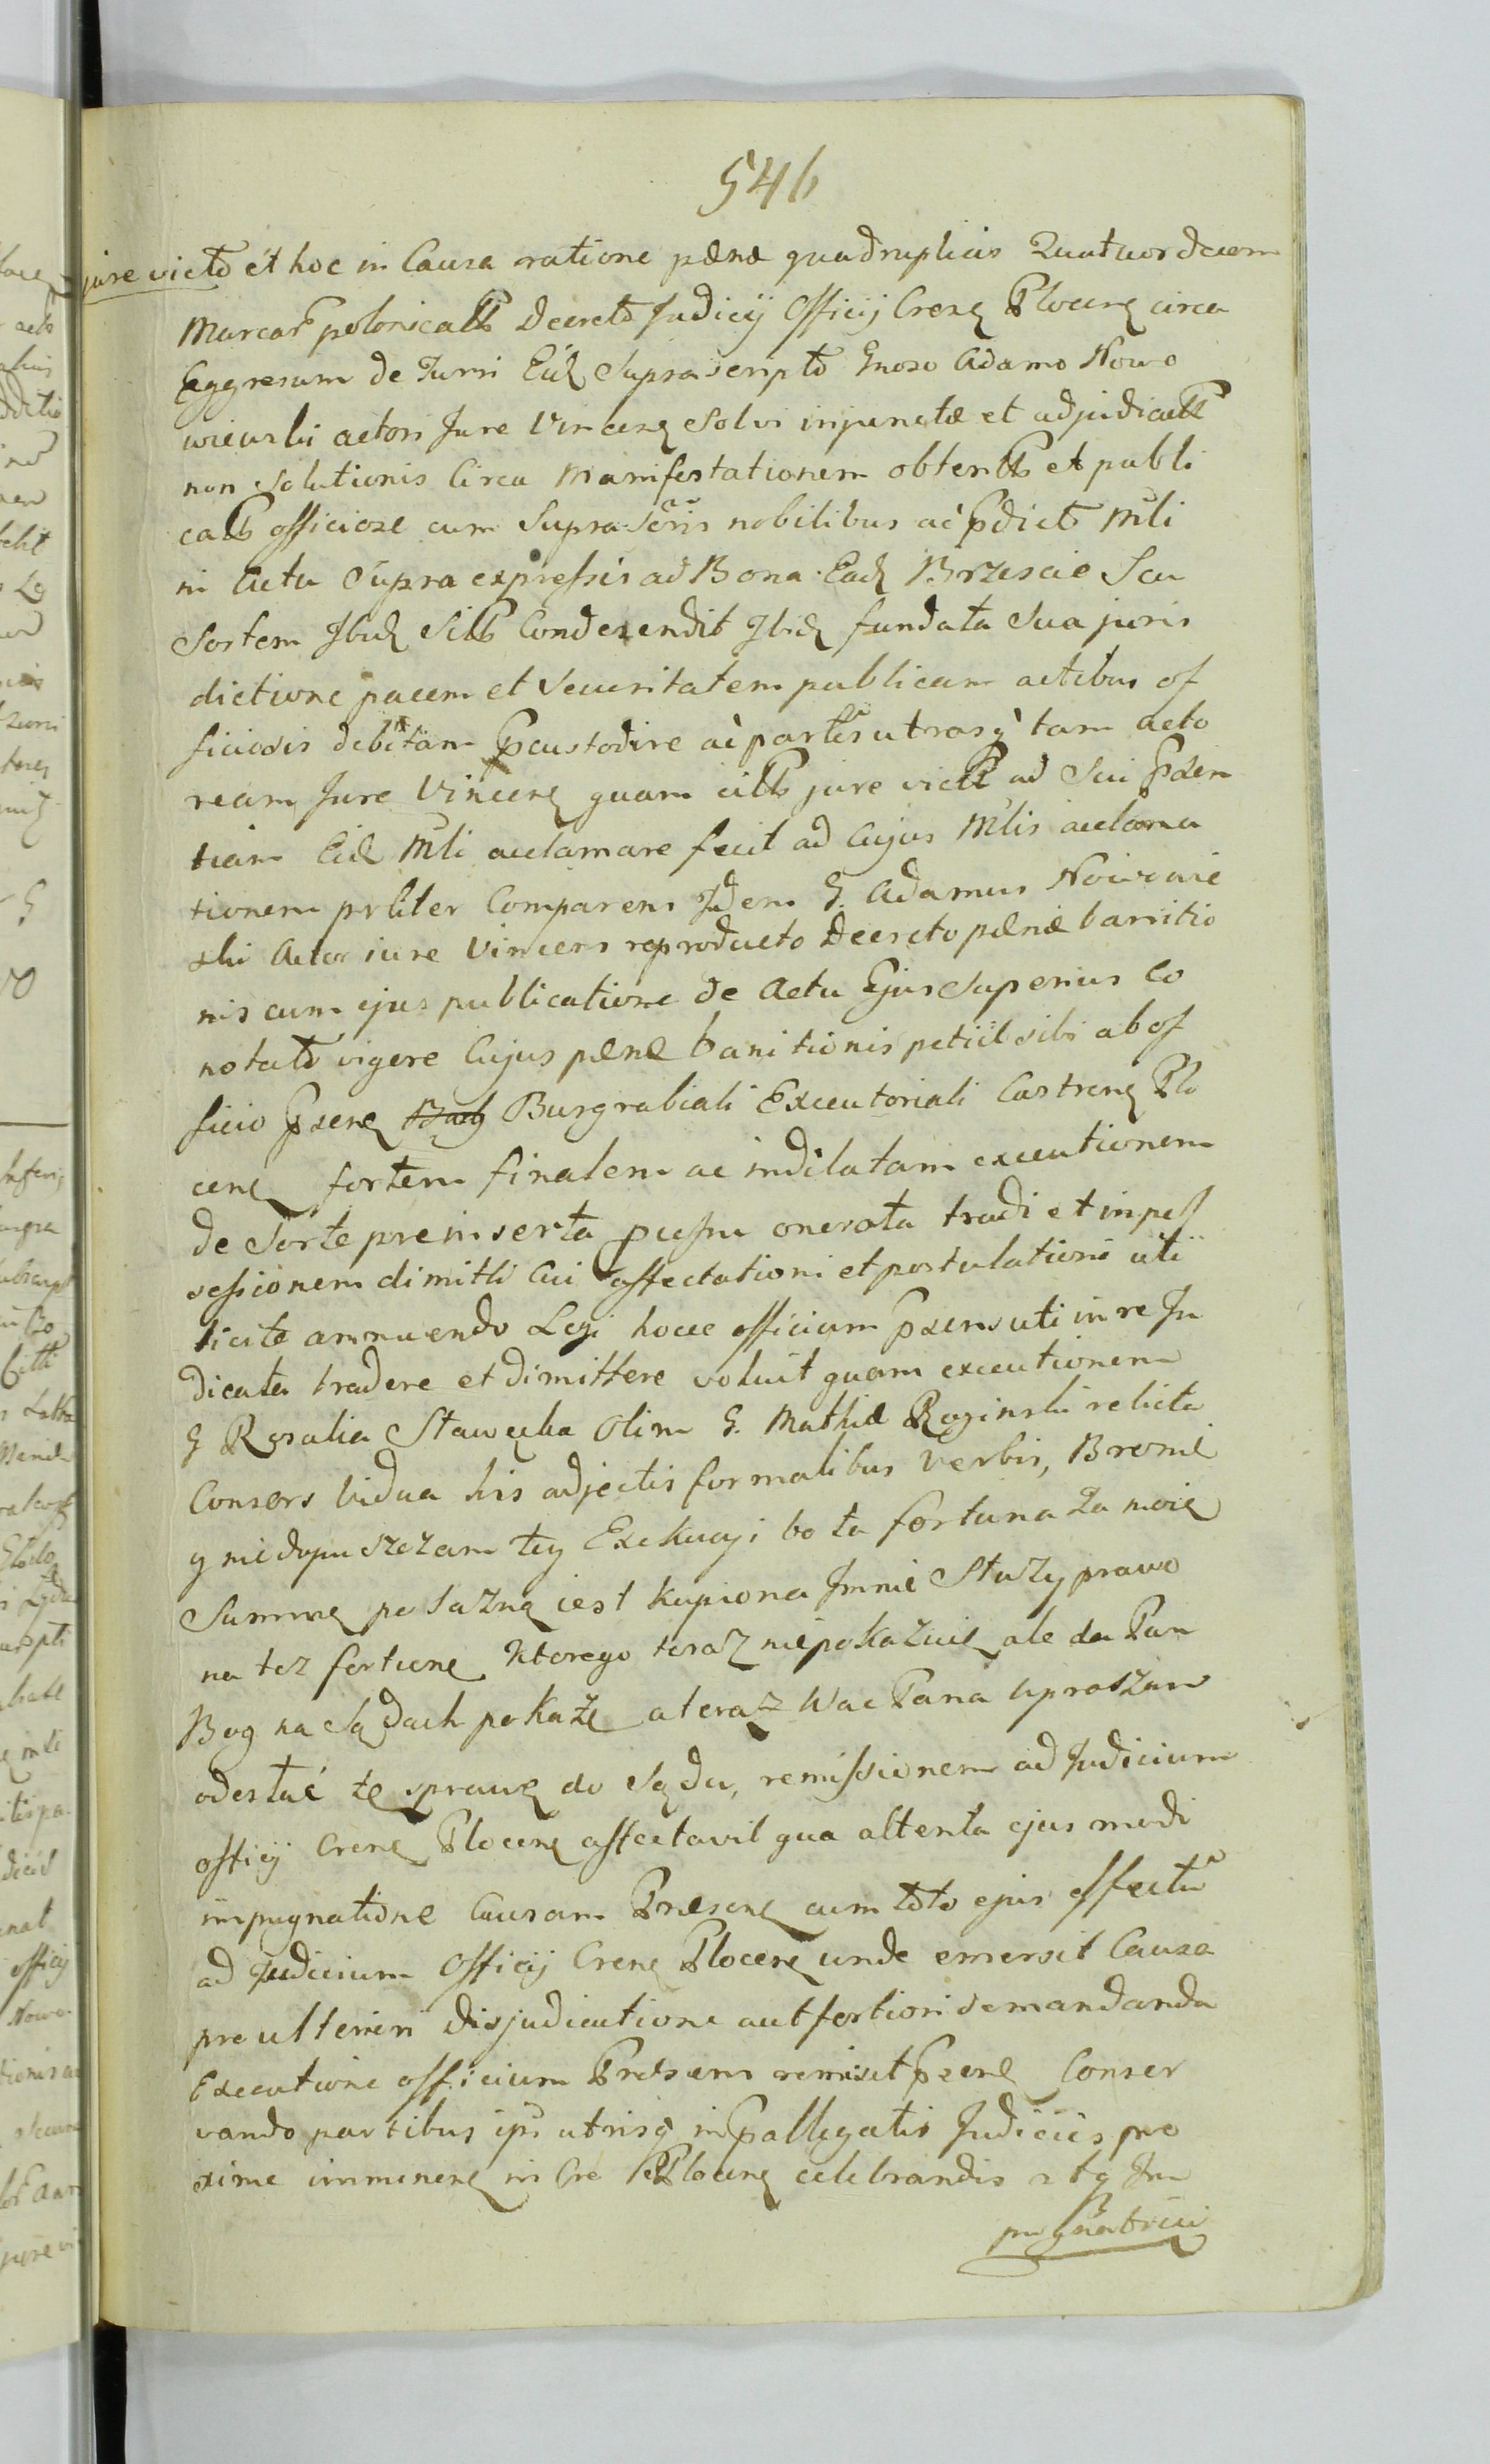 546
jure victo et hoc in Causa ratione pænæ quadruplicis Quatuordecem
Marcar polonicalb Decreto Judicij Officij Crens Plocens circa
Aggresum de Turri Eid Suprascripto Gnoso Adamo Nowo
wiewski actori Jure Vincens Solvi injunctæ et adjudicatt
non Solutionis Circa Manifestationem obtent et publi
cat officiose cum Supra Scris nobilibus ac pdicto Mli
in Actu Supra expressis ad Bona Ead Brzescie Seu
Sortem Ibid Sitt Condesendit Ibid fundata Sua juris
dictione pacem et Securitatem publicam actibus of
ficiosis debitam pcustodire ac partes utrasq tam acto
ream Jure Vincens quam citt jure vict ad Sui psen
tiam Eid Mli acclamare fecit ad Cujus Mlis acclama
tionem prliter Comparens Idem G. Adamus Nowowie
ski Actor iure Vincens reproducto Decreto pænæ bannitio
nis cum ejus publicatione de Actu Ejus Superius Co
notato vigore Cujus pænæ banitionis petiit sibi ab of
ficio psens Burgrabiali Executoriali Castrens Plo
cens fortem finalem ac indilatam executionem
de Sorte preinserta onerata tradi et in pos
sessionem dimitti Cui affectationi et postulationi uti
licite annuendo Legi hocce officium psens uti in re Ju
dicata tradere et dimittere voluit quam executionem
G Rosalia Stawęcka Olim G. Mathiæ Roginski relicta
Consors Vidua his adjectis formalibus Verbis, Bronie
y niedopuszczam tey Exekucyi bo ta fortuna Za moię
Summę posazną iest kupiona Jmnie Służy prawo
na tez fortune Ktorego teraz niepokazuię ale da Pan
Bog na Sądach pokażę a teraz WacPana upraszam
odesłać te sprawę do Sądu, remissionem ad Judicium
officij Crens Plocens affectavit qua attenta ejus modi
impugnatione Causam Præsens cum toto ejus effectu
ad Judicium Officij Crens Plocens unde emersit Causa
pro ulteriori Disjudicatione aut fortiori demandanda
Executione officium Præsens remisit psens Conser
vando partibus ips utrisq in pallegatis Judiciis pro
xime imminens in Cre Plocens celebrandis Im
pugnatrici